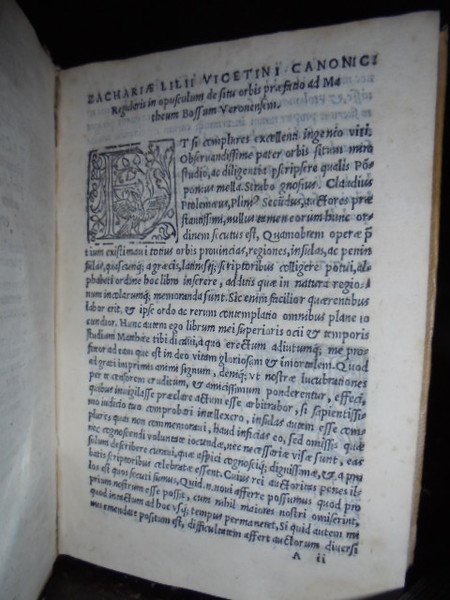 ZACHARIÆ LILII VICETINI CANONICI
Regularis in opusculum de situ orbis præfatio ad Ma
theum Bossum Veronensem.
ET si complures excellenti ingenio viri
Obseruandissime pater orbis situm miro
studio, ac diligentia pscripsere qualis Põ
ponius mella. Strabo gnosius. Claudius
Ptolemæus, Plin⁹ Secũdus, auctores præ
stantissimi, nullus tamen eorum hunc or
dinem secutus est, Quamobrem operæ p
tium existimaui totius orbis prouincias, regiones, insulas, ac penin
sulas, quascunq; a græcis, latinisq; scriptoribus colligere potui, al
phabeti ordine hoc libro inserere, additis quæ in natura regio
num incolarumq; memoranda sunt. Sic enim facilior quærentibus
labor erit, & ipso ordo ac rerum contemplatio omnibus plane io
cundior. Hunc autem ego librum mei superioris ocii & temporis
studium Matthæe tibi dicaui, a quo erectum adiutumq; me pro
fiteor ad eam quæ est in deo vitam gloriosem & imortalem. Quod
si grati imprimis animi signum, deniq; vt nostræ lucubrationes
per te censorem eruditum, & amicissimum ponderentur, effeci,
quibus inuigilasse præclare actum esse arbitrabor, si sapientissi
mo iudicio tuo comprobari intellexero, insulas autem esse com
plures quas non commemoraui, haud inficias eo, sed omissis quæ
nec cognoscendi voluntate iocundæ, nec necessariæ visæ sunt, eas
solum describere curaui, quæ aspici cognosciq; dignissimæ, & a p
batis scriptoribus celebratæ essent. Cuius rei auctoritas penes il
los est quos secuti sumus, Quid.n. noui afferre possumus quod pro
prium nostrum esse possit, cum nihil maiores nostri omiserint,
quod intactum ad hoc vsq; tempus permaneret, Si quid autem mi
nus emendate positum est, difficultatem affert auctorum diuersi
A ii